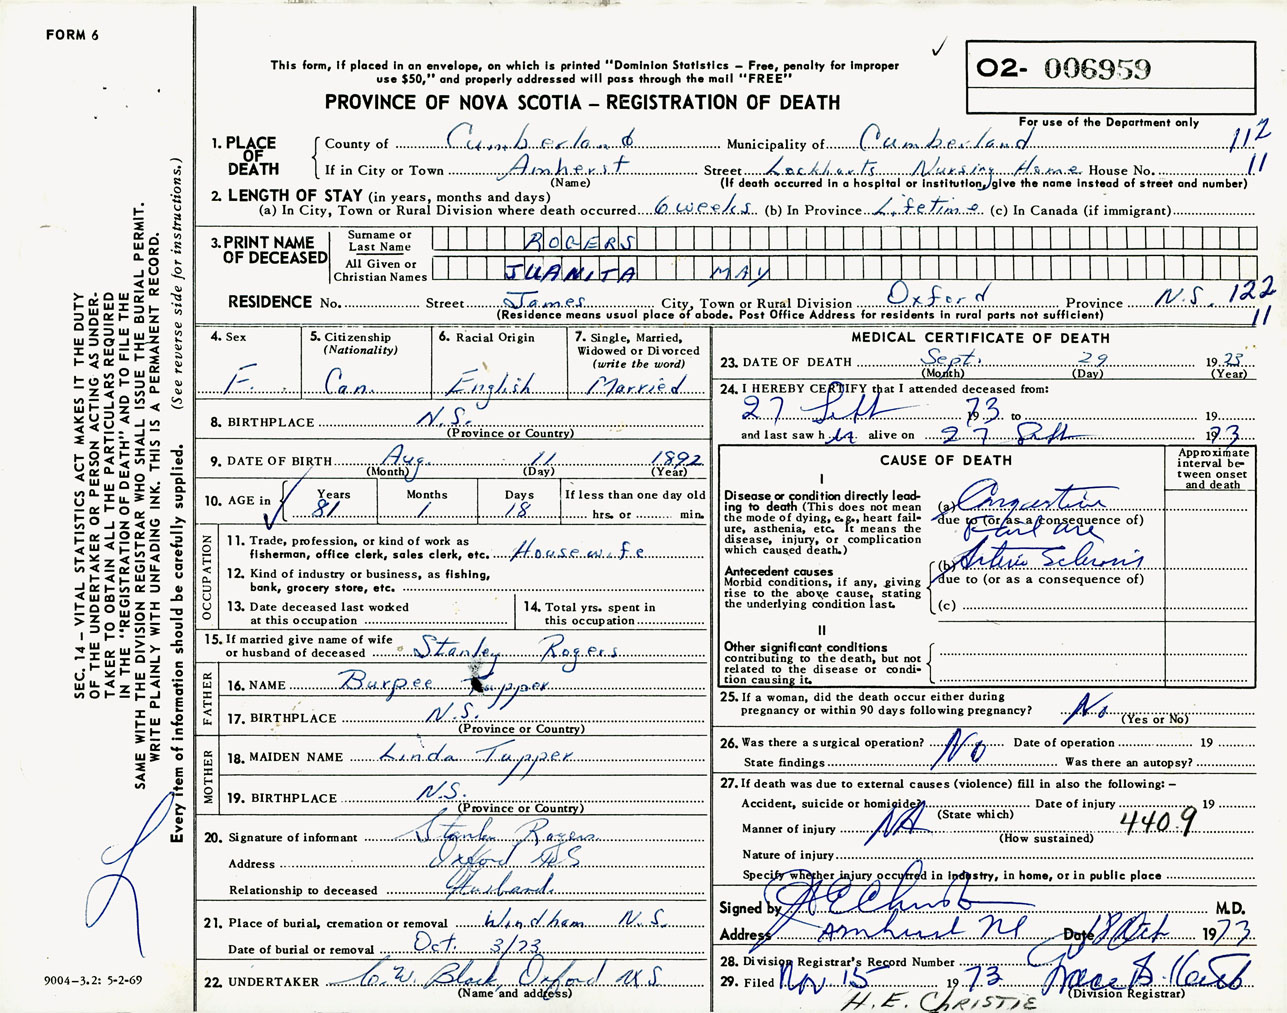 FORM 6
This form, if placed in an envelope, on which is printed "Dominion Statistics – Free, penalty for improper
use $50," and properly addressed will pass through the mail "FREE"
PROVINCE OF NOVA SCOTIA – REGISTRATION OF DEATH
02- 006959
For use of the Department only
1. PLACE OF DEATH
County of Cumberland Municipality of Cumberland 112
If in City or Town Amherst Street Lockharts Nursing Home House No. 11
(Name) (If death occurred in a hospital or institution, give the name instead of street and number)
2. LENGTH OF STAY (in years, months and days)
(a) In City, Town or Rural Division where death occurred 6 weeks (b) In Province Lifetime (c) In Canada (if immigrant)
3. PRINT NAME OF DECEASED
Surname or Last Name ROGERS
All Given or Christian Names JUANITA MAY
RESIDENCE No. Street James City, Town or Rural Division Oxford Province N.S. 122
(Residence means usual place of abode. Post Office Address for residents in rural parts not sufficient) 11
4. Sex
F.
5. Citizenship
(Nationality)
Can.
6. Racial Origin
English
7. Single, Married,
Widowed or Divorced
(write the word)
Married
8. BIRTHPLACE N.S.
(Province or Country)
9. DATE OF BIRTH Aug. 11 1892
(Month) (Day) (Year)
10. AGE in
Years Months Days If less than one day old
81 1 18 hrs. or min.
OCCUPATION
11. Trade, profession, or kind of work as
fisherman, office clerk, sales clerk, etc. Housewife
12. Kind of industry or business, as fishing,
bank, grocery store, etc.
13. Date deceased last worked
at this occupation
14. Total yrs. spent in
this occupation
15. If married give name of wife
or husband of deceased Stanley Rogers
FATHER
16. NAME Burpee Tupper
17. BIRTHPLACE N.S.
(Province or Country)
MOTHER
18. MAIDEN NAME Linda Tupper
19. BIRTHPLACE N.S.
(Province or Country)
20. Signature of informant Stanley Rogers
Address Oxford NS
Relationship to deceased Husband.
21. Place of burial, cremation or removal Windham N.S.
Date of burial or removal Oct. 3/73
22. UNDERTAKER C. W. Black, Oxford N.S
(Name and address)
MEDICAL CERTIFICATE OF DEATH
23. DATE OF DEATH Sept. 29 1973
(Month) (Day) (Year)
24. I HEREBY CERTIFY that I attended deceased from:
27 Sept 1973 to 19
and last saw her alive on 27 Sept 1973
CAUSE OF DEATH
Approximate
interval be-
tween onset
and death
I
Disease or condition directly lead-
ing to death (This does not mean
the mode of dying, e.g., heart fail-
ure, asthenia, etc. It means the
disease, injury, or complication
which caused death.)
(a) Congestive
due to (or as a consequence of)
Failure
Antecedent causes
Morbid conditions, if any, giving
rise to the above cause, stating
the underlying condition last.
(b) Arterio Sclerosis
due to (or as a consequence of)
(c)
II
Other significant conditions
contributing to the death, but not
related to the disease or condi-
tion causing it.
25. If a woman, did the death occur either during
pregnancy or within 90 days following pregnancy? No
(Yes or No)
26. Was there a surgical operation? No Date of operation 19
State findings Was there an autopsy?
27. If death was due to external causes (violence) fill in also the following: –
Accident, suicide or homicide? Date of injury 19
(State which)
Manner of injury NA 440.9
(How sustained)
Nature of injury
Specify whether injury occurred in industry, in home, or in public place
Signed by H E Christie M.D.
Address Amherst NS Date 18 Oct 1973
28. Division Registrar's Record Number
29. Filed Nov 15 1973
(Division Registrar)
H. E. CHRISTIE
SEC. 14 – VITAL STATISTICS ACT MAKES IT THE DUTY
OF THE UNDERTAKER OR PERSON ACTING AS UNDER-
TAKER TO OBTAIN ALL THE PARTICULARS REQUIRED
IN THE "REGISTRATION OF DEATH" AND TO FILE THE
SAME WITH THE DIVISION REGISTRAR WHO SHALL ISSUE THE BURIAL PERMIT.
WRITE PLAINLY WITH UNFADING INK. THIS IS A PERMANENT RECORD.
Every item of information should be carefully supplied. (See reverse side for instructions.)
9004-3.2: 5-2-69